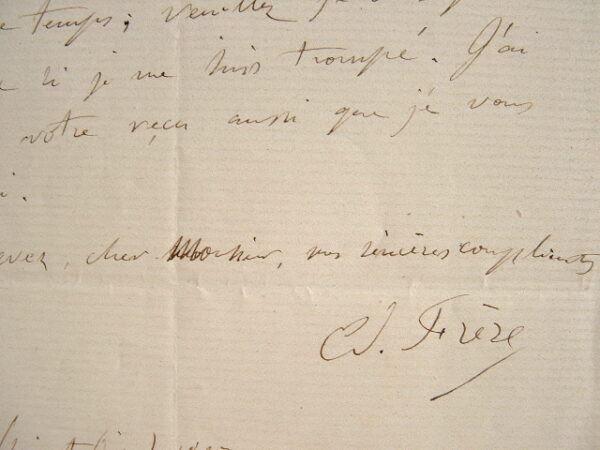 temps; veuillez
si je me suis trompé. J'ai
votre reçu ainsi que je vous
cher Monsieur, mes sincères compliments
Ed. Frère